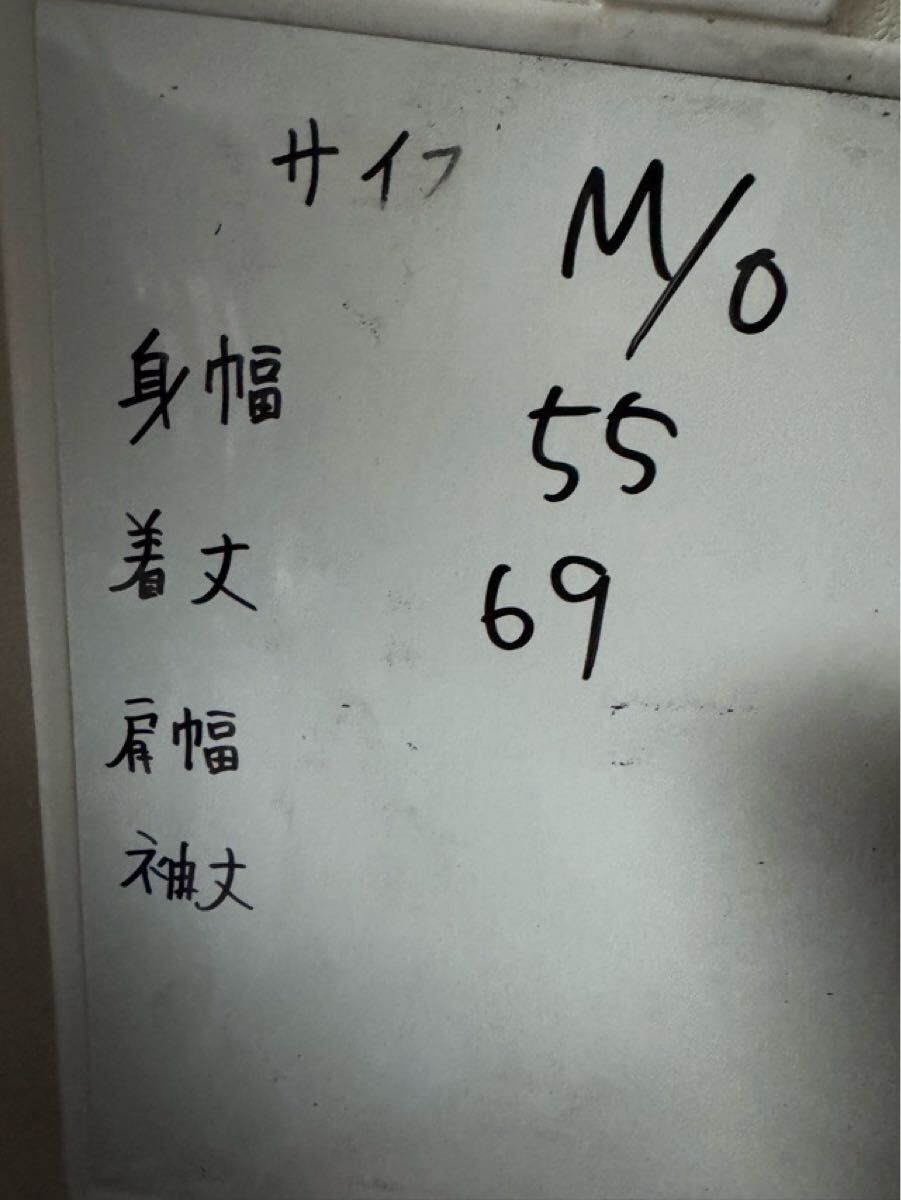 サイフ M/0
身幅 55
着丈 69
肩幅
袖丈